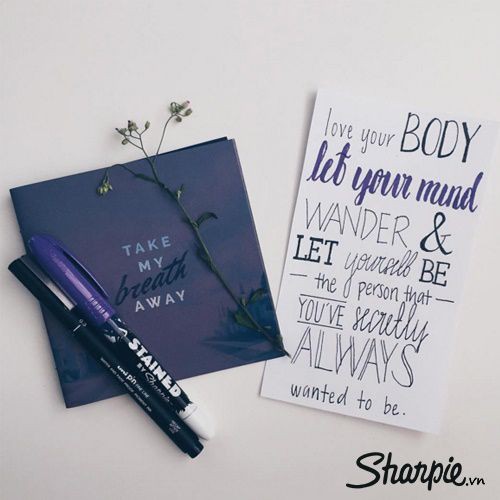 TAKE
MY
breath
AWAY
STAINED
BY Sharpie
uni pin FINE LINE
love your BODY
let your mind
WANDER &
LET yourself BE
the person that
YOU'VE secretly
ALWAYS
wanted to be.
Sharpie.vn